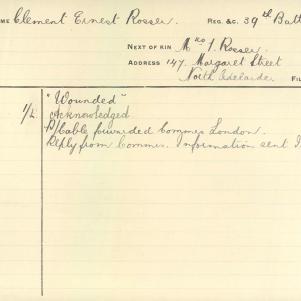 ME Clement Ernest Rosser. REG. &C. 39th Batt
NEXT OF KIN Mrs J. Rosser.
ADDRESS 147 Margaret Street
North Adelaide. FIL
"Wounded"
Acknowledged
cable forwarded Commrs London.
Reply from Commrs. Information sent